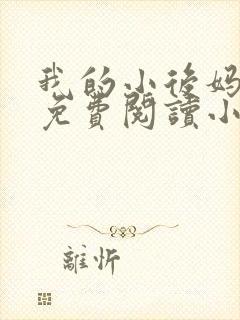 我的小後媽
免費閱讀小
離忻